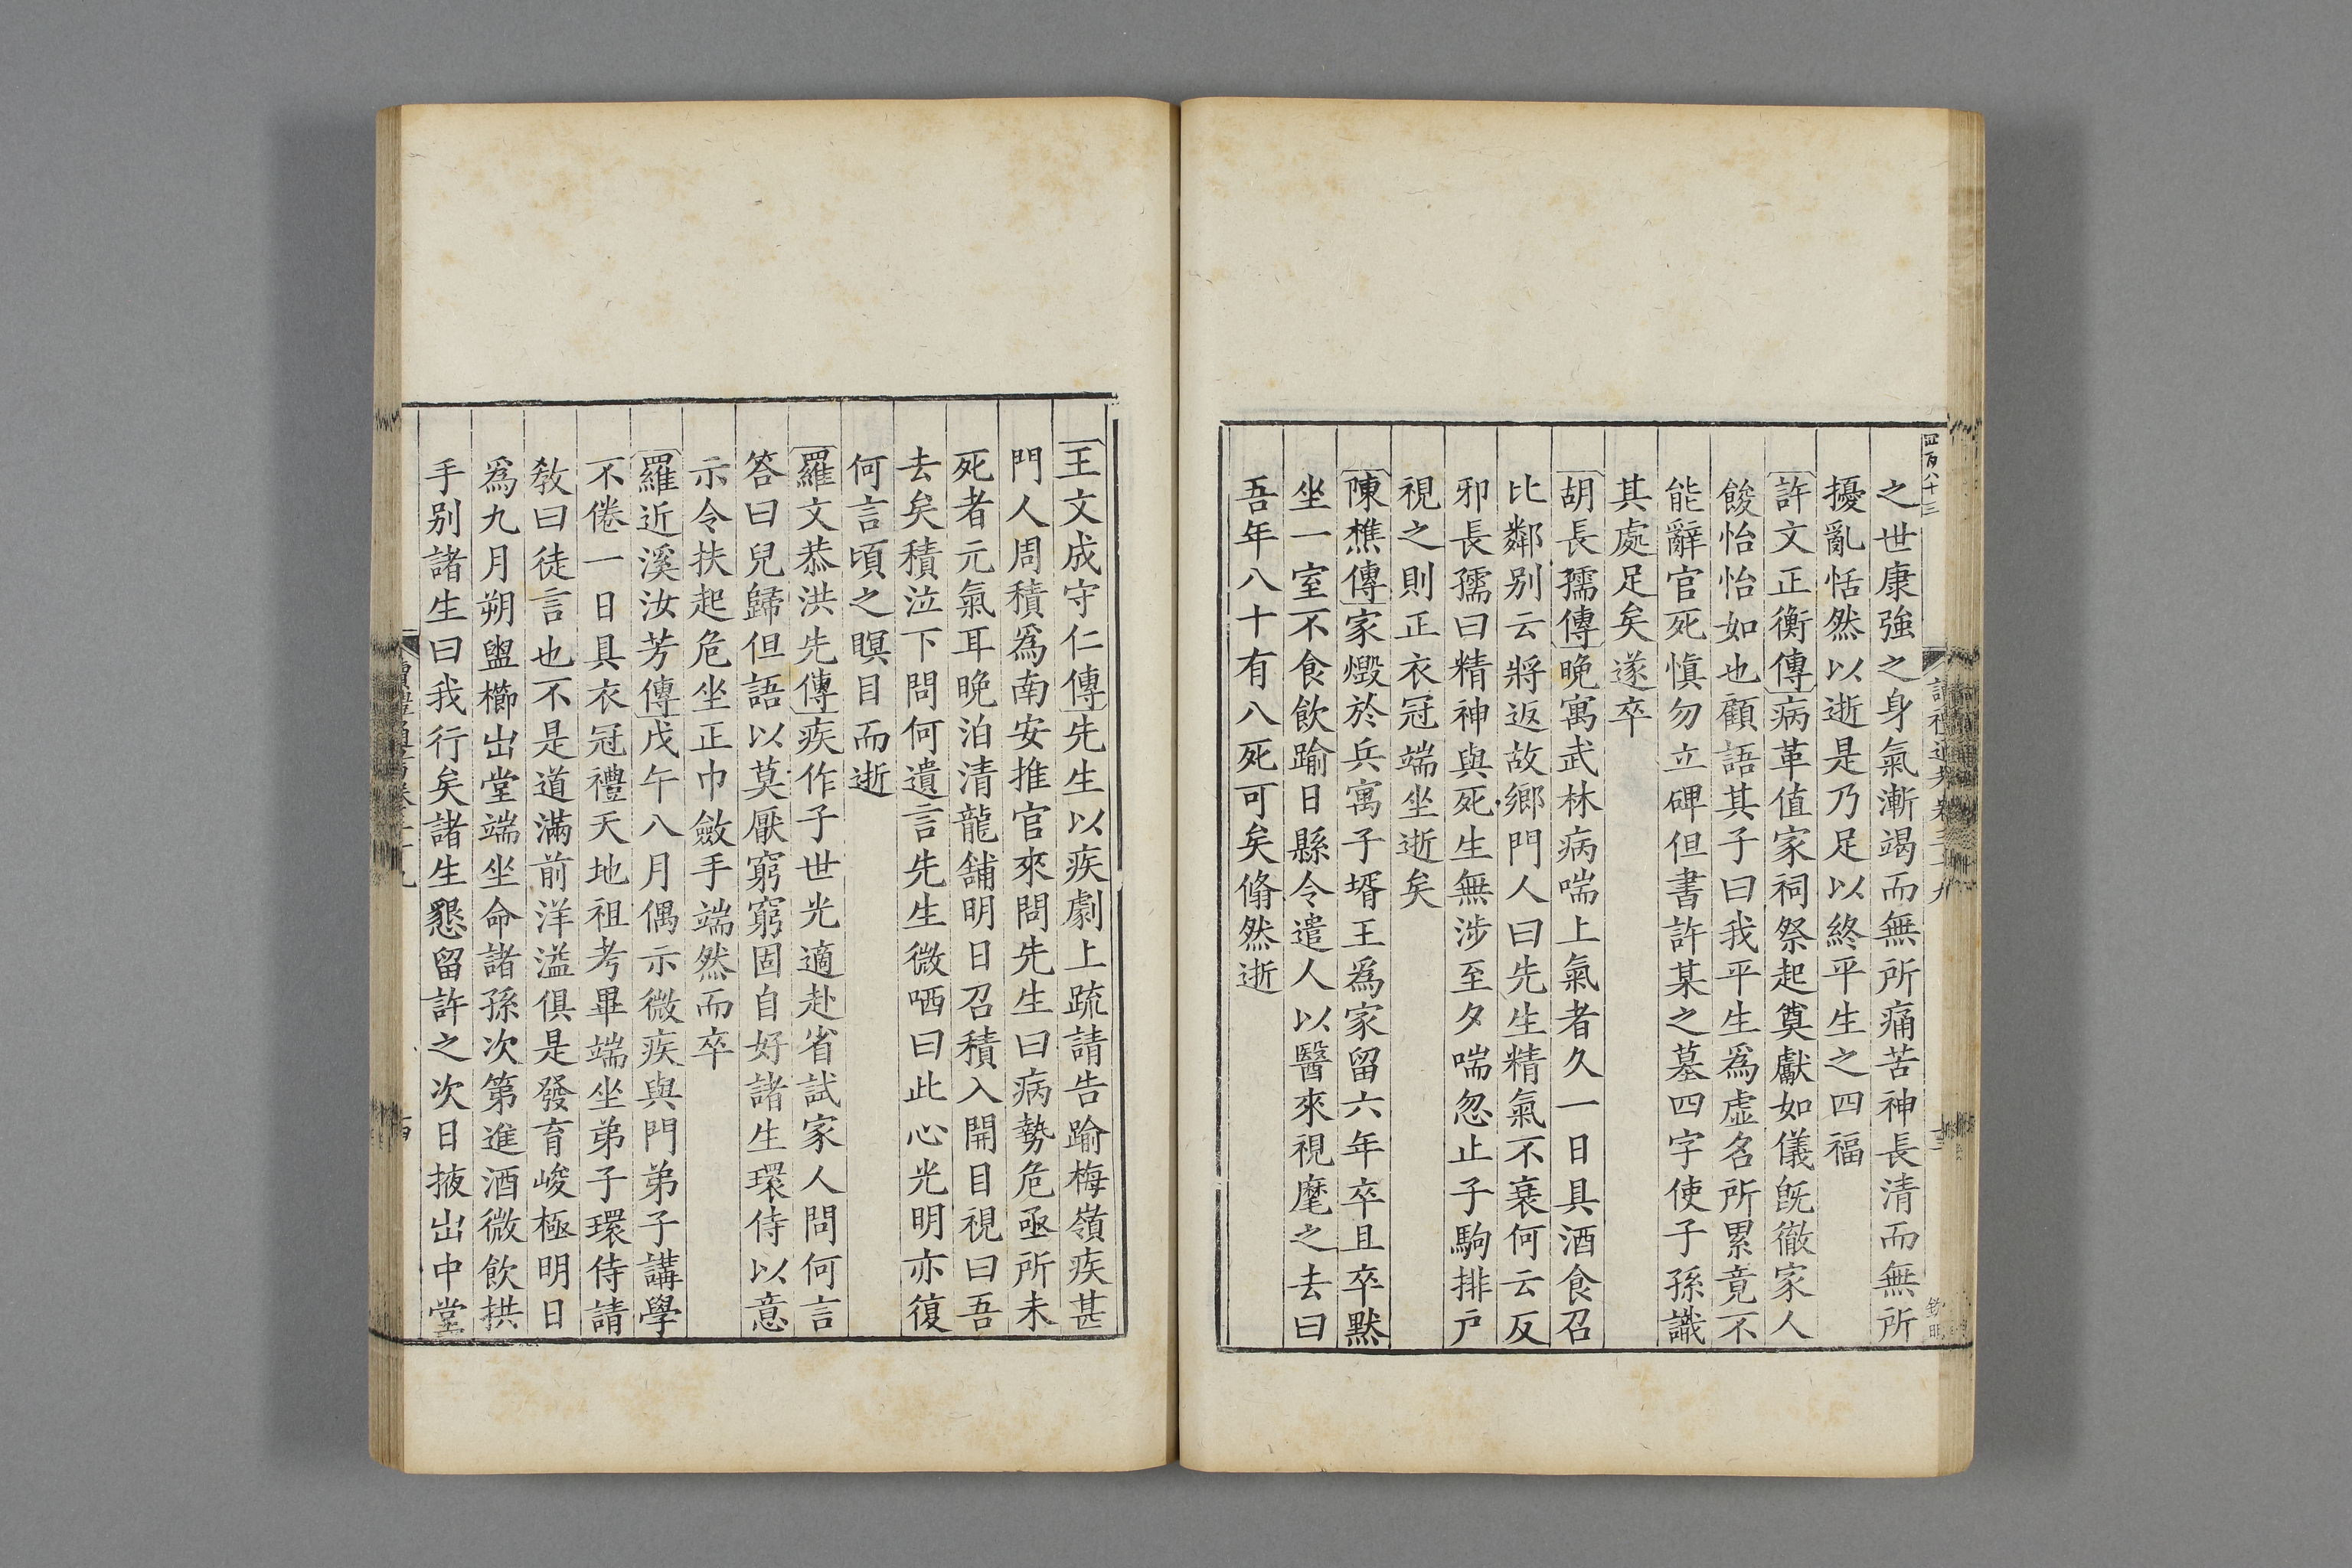 四百八十三
之世康強之身氣漸竭而無所痛苦神長清而無所
擾亂恬然以逝是乃足以終平生之四福
許文正衡傳病革值家祠祭起奠獻如儀旣徹家人
餕怡怡如也顧語其子曰我平生爲虛名所累竟不
能辭官死愼勿立碑但書許某之墓四字使子孫識
其處足矣遂卒
胡長孺傳晚寓武林病喘上氣者久一日具酒食召
比鄰别云將返故鄉門人曰先生精氣不衰何云反
邪長孺曰精神與死生無涉至夕喘忽止子駒排戸
視之則正衣冠端坐逝矣
陳樵傳家燬於兵寓子壻王爲家留六年卒且卒默
坐一室不食飲踰日縣令遣人以醫來視麾之去曰
吾年八十有八死可矣翛然逝
王文成守仁傳先生以疾劇上疏請告踰梅嶺疾甚
門人周積爲南安推官來問先生曰病勢危亟所未
死者元氣耳晚泊清龍舖明日召積入開目視曰吾
去矣積泣下問何遺言先生微哂曰此心光明亦復
何言頃之瞑目而逝
羅文恭洪先傳疾作子世光適赴省試家人問何言
答曰兒歸但語以莫厭窮窮固自好諸生環侍以意
示令扶起危坐正巾斂手端然而卒
羅近溪汝芳傳戊午八月偶示微疾與門弟子講學
不倦一日具衣冠禮天地祖考畢端坐弟子環侍請
敎曰徒言也不是道滿前洋溢俱是發育峻極明日
爲九月朔盥櫛出堂端坐命諸孫次第進酒微飲拱
手别諸生曰我行矣諸生懇留許之次日掖出中堂